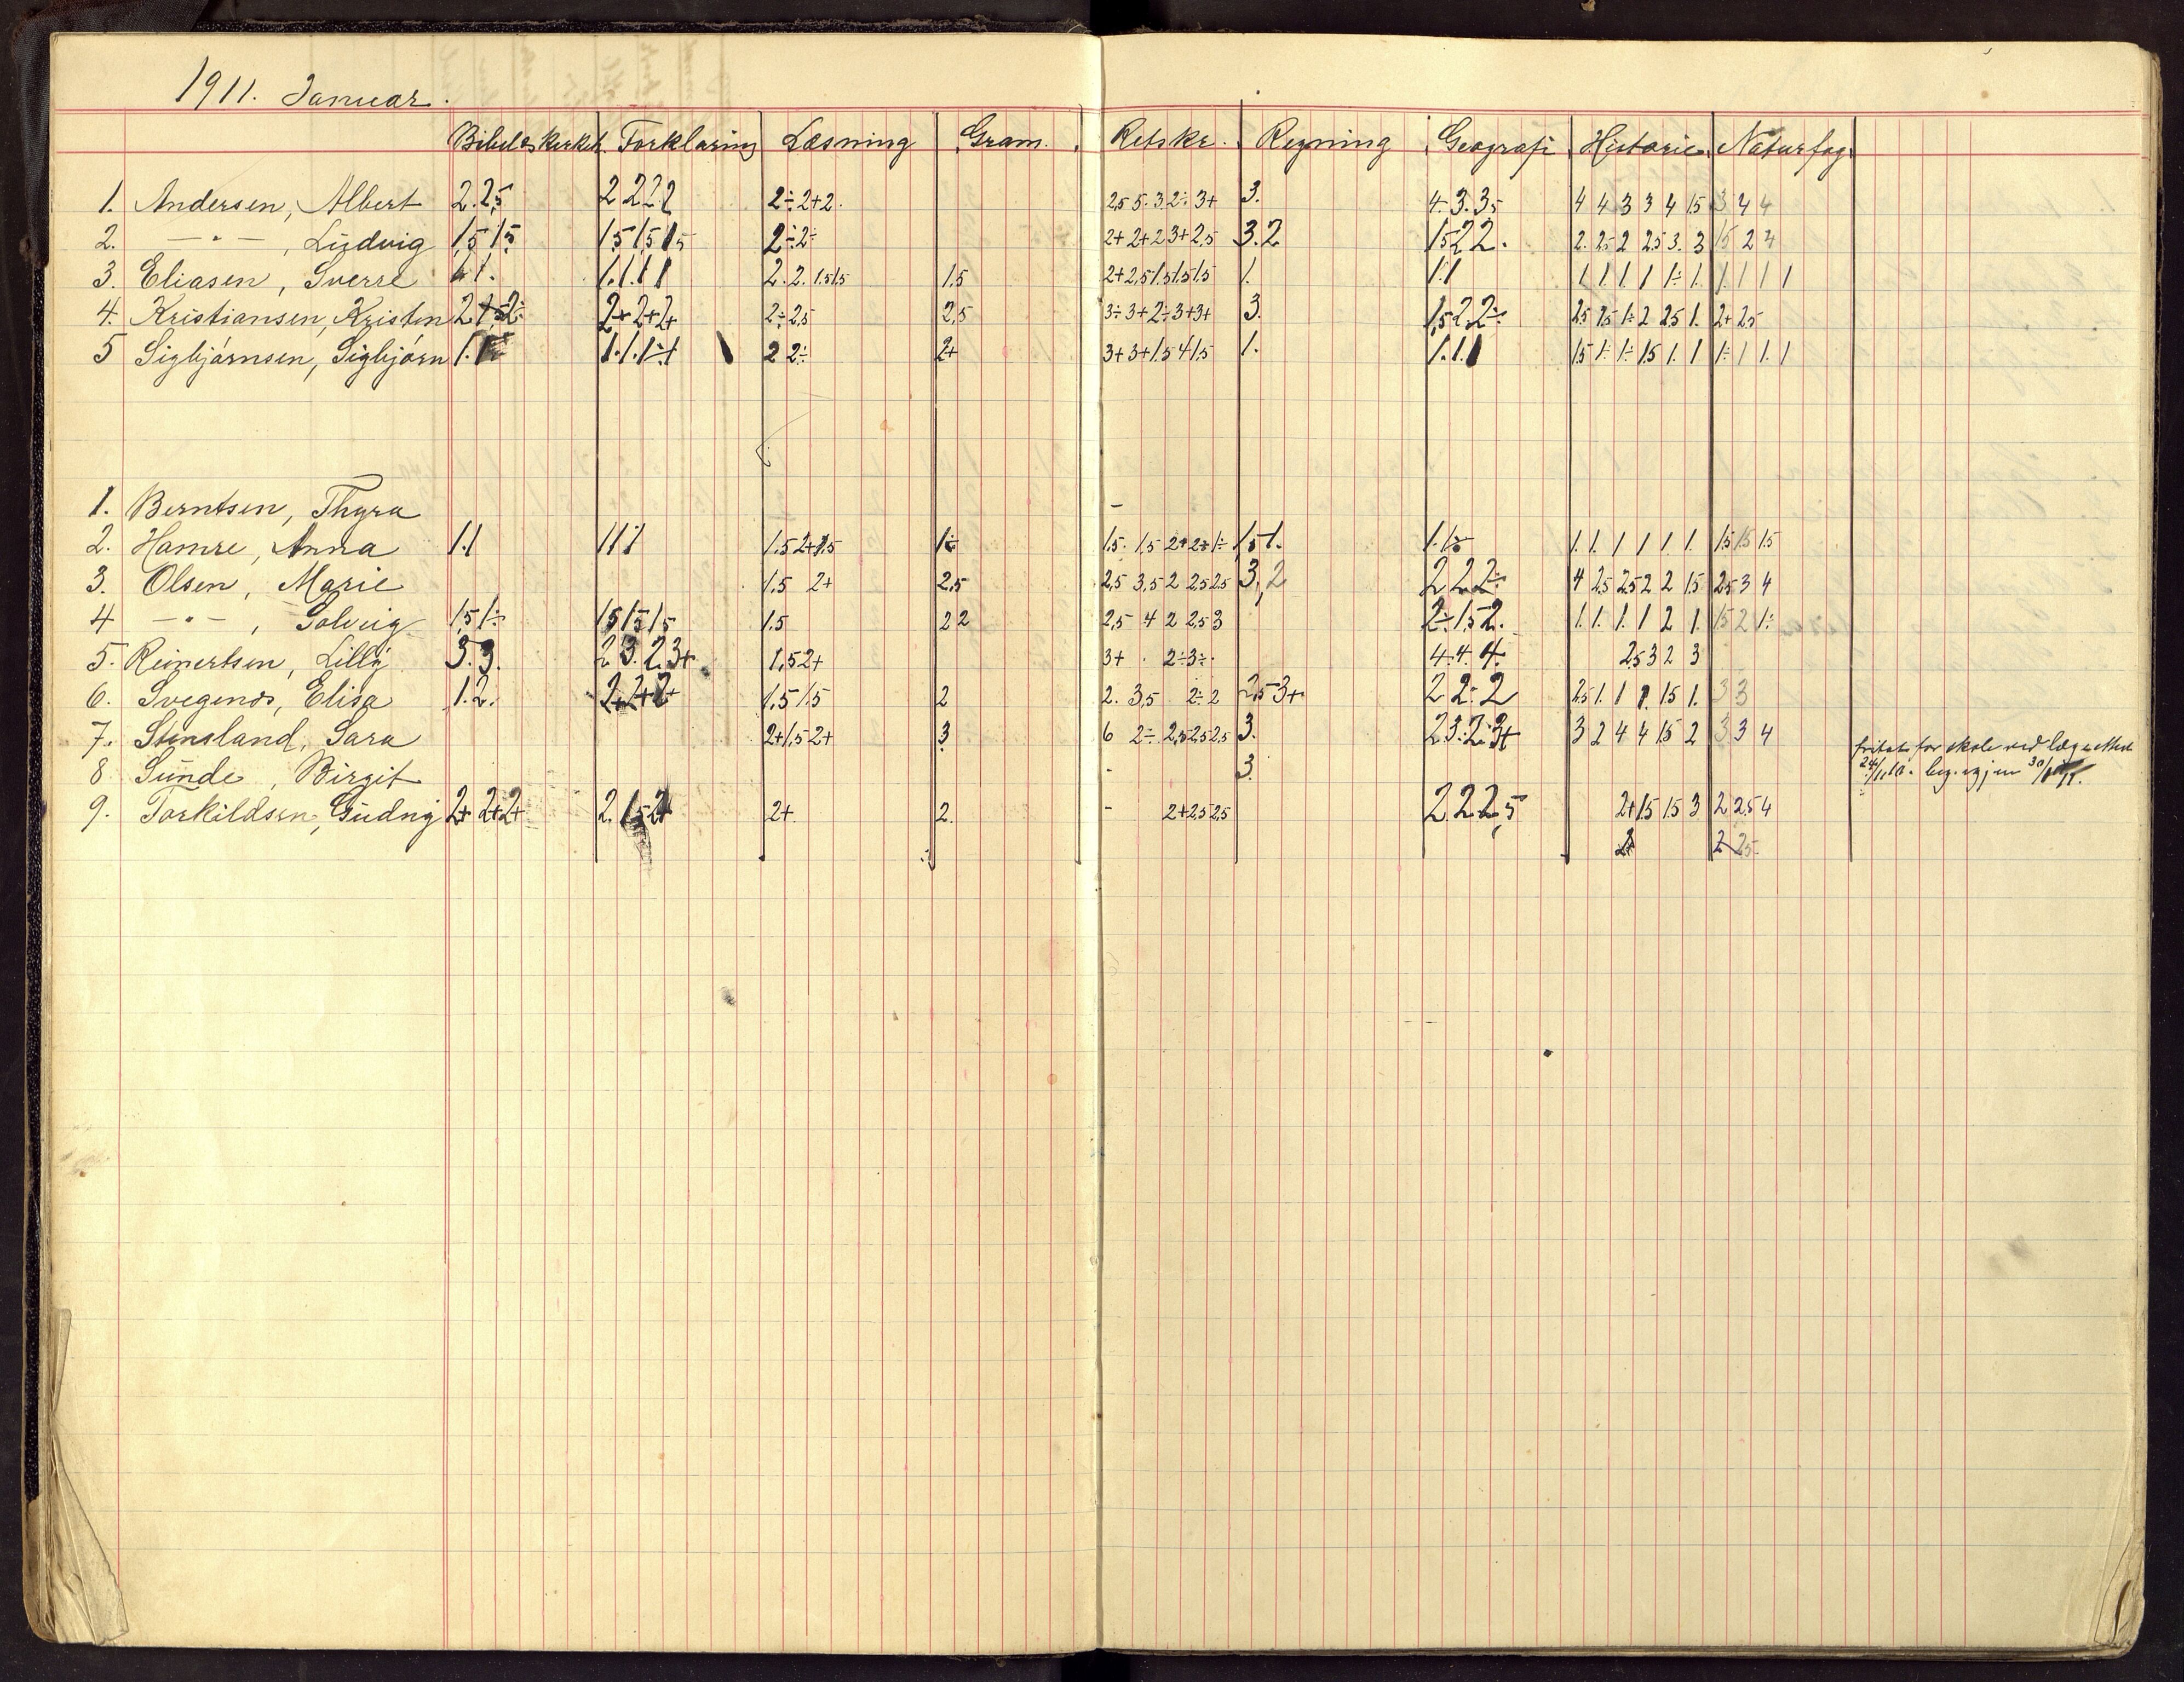 1911. Januar.
Forklaring Læsning Gram. Retskr. Regning Geografi Historie Naturfag
1. Andersen, Albert 2.2,5 2 2 2 2 2÷2+2. 2,5 5. 3 2÷ 3+ 3. 4.3.3,5 4 4 3 3 4 1,5 3 4 4
2. —"— , Ludvig 1,5 1,5 1,5 1,5 1,5 2÷2÷ 2+ 2+ 2 3+ 2,5 3.2 1,5 2 2. 2. 2,5 2 2,5 3. 3 1,5 2 4
3. Eliasen, Sverre 1.1.1 1 2. 2. 1,5 1,5 1,5 2+ 2,5 1,5 1,5 1,5 1. 1.1 1 1 1 1 1÷ 1. 1. 1 1 1
4. Kristiansen, Kristen 2+2+2+ 2÷2,5 2,5 3÷3+2÷3+3+ 3. 1,5 2 2÷ 2,5 1,5 1÷ 2 2,5 1. 2+ 2,5
5 Sigbjørnsen, Sigbjørn 1. 1.1.1÷1 2 2÷ 2+ 3+ 3+ 1,5 4 1,5 1. 1.1.1 1,5 1÷ 1÷ 1,5 1. 1 1÷ 1 1. 1
1. Berntsen, Thyra -
2. Hamre, Anna 1.1 1 1 1 1,5 2+ 1,5 1÷ 1,5. 1,5 2+ 2÷ 1÷ 1,5 1. 1. 1,5 1. 1. 1 1 1. 1. 1,5 1,5 1,5
3. Olsen, Marie 1,5 2+ 2,5 2,5 3,5 2 2,5 2,5 3,2 2 2 2÷ 4 2,5 2,5 2 2 1,5 2,5 3 4
4 —"— , Solveig 1,5 1÷ 1,5 1,5 1,5 1,5 2 2 2,5 4 2 2,5 3 2÷ 1,5 2. 1. 1. 1. 1 2 1. 1,5 2 1÷
5. Reinertsen, Lilly 3.3. 2 3. 2 3+ 1,5 2+ 3+ 2÷3÷ 4. 4. 4. 2,5 3 2 3
6. Elisa 1.2. 2+2+2+ 1,5 1,5 2 2. 3,5 2÷ 2 2,5 3+ 2 2÷ 2 2,5 1. 1 1. 1,5 1. 3 3
7. Stensland, Sara 2+ 1,5 2+ 3 6 2÷ 2,5 2,5 2,5 3. 2 3. 2. 3+ 3 2 4 4 1,5 2 3 3 4
8. Sunde, Birgit - 3. for skole ved
24/11 10.
9. Torkildsen, Gudny 2+ 2+2+ 2. 1,5 2+ 2+ 2. - 2+ 2,5 2,5 2 2 2 2,5 2+ 1,5 1,5 3 2 2,5 4
2 2,5